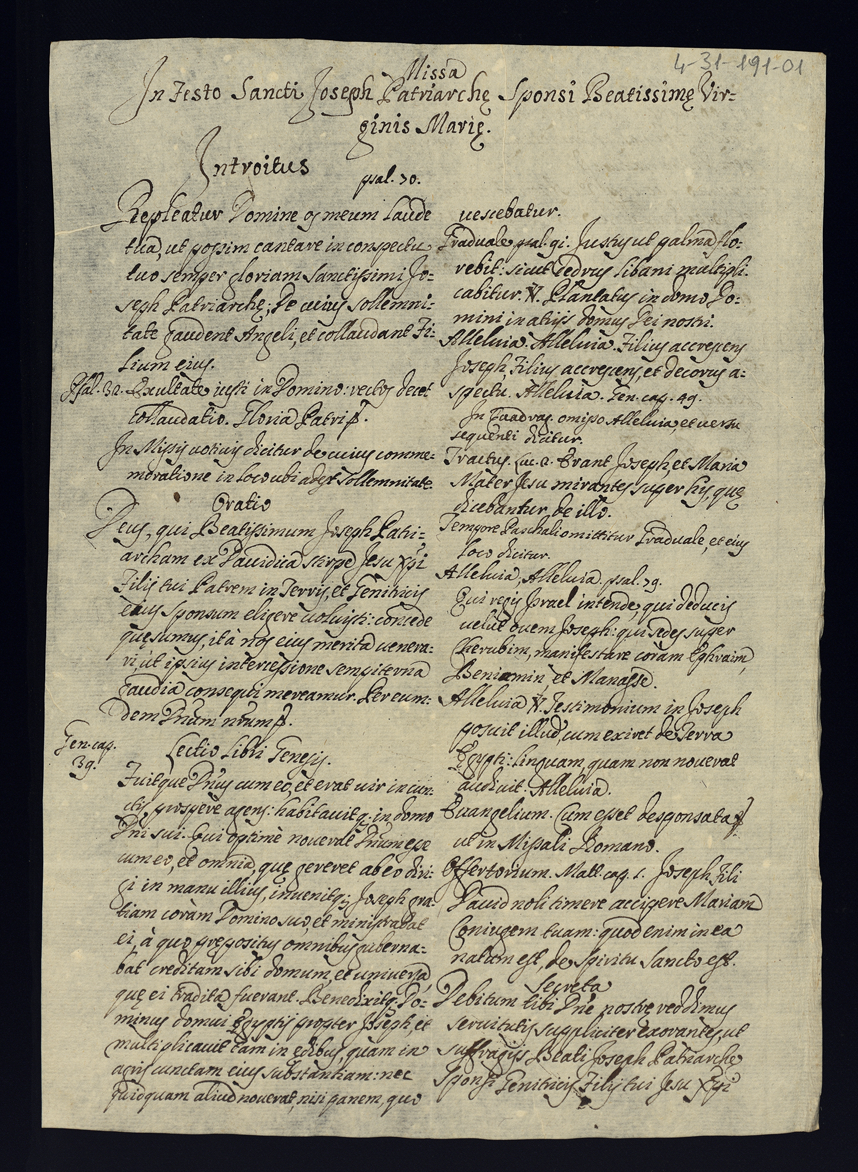 4-31-191-01
Missa
In Festo Sancti Joseph Patriarchę Sponsi Beatissimę Vir-
ginis Marię.
Introitus
psal. 70.
Repleatur Domine os meum laude
tua, ut possim cantare in conspectu
tuo semper gloriam Sanctissimi Jo-
seph Patriarchę; De cuius sollemni-
tate gaudent Angeli, et collaudant Fi-
lium eius.
Psal. 32. Exultate iusti in Domino: rectos decet
collaudatio. Gloria Patri
In Missis votiuis dicitur de cuius comme-
moratione in loco ubi adest sollemnitate.
Oratio
Deus, qui Beatissimum Joseph Patri-
archam ex Dauidica stirpe Jesu Xpi
Filij tui Patrem in Terris, et Genitricis
eius Sponsum eligere voluisti: concede
quęsumus, ita nos eius merita venera-
ri, ut ipsius intercessione sempiterna
gaudia consequi mereamur. Per eum-
dem Dnum nrum
Gen. cap.
39.
Lectio Libri Genesis.
Fuitque Dnus cum eo, et erat uir in cun-
ctis prospere agens: habitauitq; in domo
Dni sui: Qui optimè nouerat Dnum esse
cum eo, et omnia, quę gereret ab eo diri-
gi in manu illius, inuenitq; Joseph gra-
tiam coràm Domino suo, et ministrabat
ei, à quo prępositus omnibus guberna-
bat creditam sibi domum, et universa,
quę ei tradita fuerant. Benedixitq; Do-
minus domui Ęgyptij propter Joseph et
multiplicauit tam in ędibus, quam in
agris cunctam eius substantiam: nec
quidquam aliud nouerat, nisi panem, quo
uescebatur.
Graduale psal. 91. Justus ut palma flo-
rebit: sicut Cedrus Libani multipli-
cabitur. ℣. Plantatus in domo Do-
mini in atrijs domus Dei nostri.
Alleluia. Alleluia. Filius accrescens
Joseph, Filius accrescens, et decorus a-
spectu. Alleluia. Gen. cap. 49.
In Quadrag. omisso Alleluia, et versu
sequenti dicitur.
Tractus. Luc. 2. Erant Joseph, et Maria
Mater Jesu mirantes super his, quę
dicebantur de illo.
Tempore Paschali omittitur Graduale, et eius
loco dicitur.
Alleluia, Alleluia. psal. 79.
Qui regis Israel intende, qui deducis
velut ouem Joseph: qui sedes super
Cherubim, manifestare coram Ephraim,
Beniamin et Manasse.
Alleluia ℣. Testimonium in Joseph
posuit illud, cum exiret de Terra
Ęgypti: linguam, quam non nouerat
audiuit. Alleluia.
Euangelium. Cum esset desponsata
ut in Missali Romano.
Offertorium. Matt. cap. 1. Joseph Fili
Dauid noli timere accipere Mariam
Coniugem tuam: quod enim in ea
natum est, de Spiritu Sancto est.
Secreta
Debitum tibi Dne nostrę reddimus
seruitutis suppliciter exorantes, ut
suffragijs Beati Joseph Patriarchę
Sponsi Genitricis Filij tui Jesu Xpi